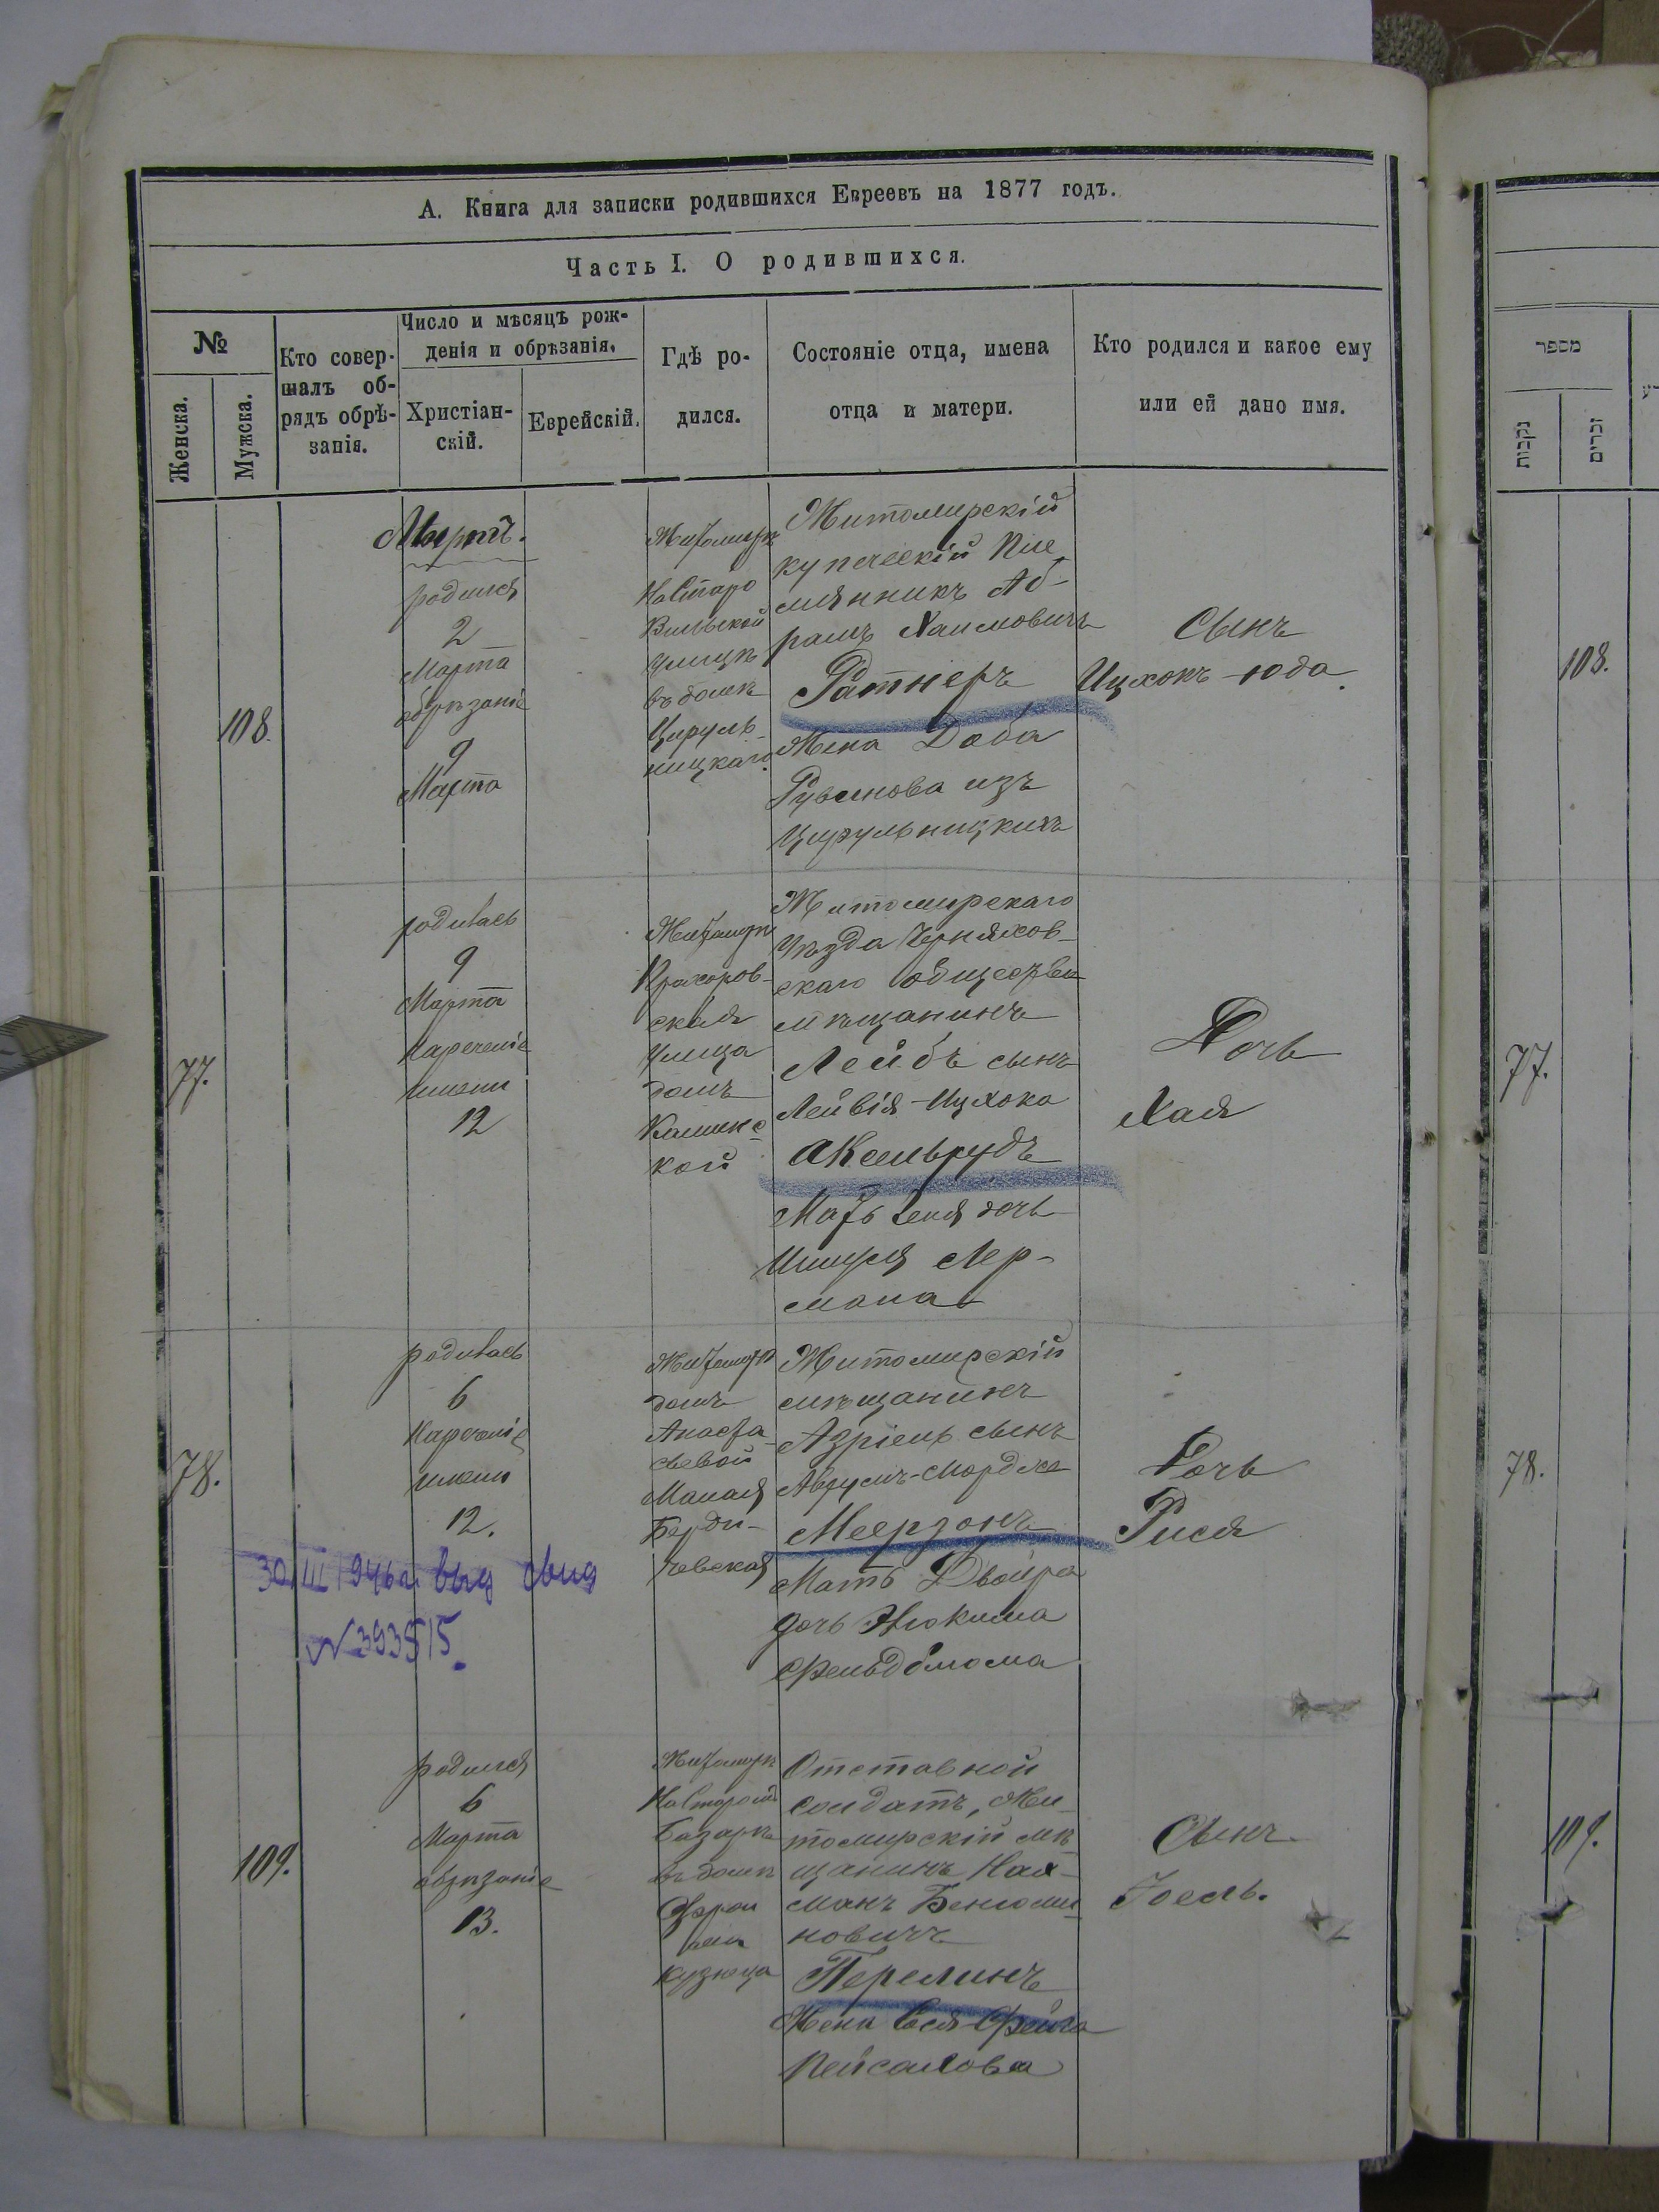 А. Книга для записки родившихся Евреевъ на 1877 годъ.
Часть I. О родившихся.
№
Женска.
Мужска.
Кто совер-
шалъ об-
рядъ обрѣ-
занія.
Число и мѣсяцъ рож-
денія и обрѣзанія.
Христіан-
скій.
Еврейскій.
Гдѣ ро-
дился.
Состояніе отца, имена
отца и матери.
Кто родился и какое ему
или ей дано имя.
108.
Мартъ.
родился
2
Марта
обрѣзаніе
9
Марта
Житомиръ
На Старо
Вильской
улицѣ
въ домѣ
Цируль-
ницкаго.
Житомирскій
купеческій Пле-
мянникъ Аб-
рамъ Хаимовичъ
Ратнеръ
Жена Доба
Рувинова изъ
Цирульницкихъ
Сынъ
Ицхокъ-Юда.
77.
родилась
9
Марта
Нареченіе
имени
12
Житомиръ
Прохоров-
ская
улица
домъ
кой
Житомирскаго
Уѣзда Черняхов-
скаго общества
мѣщанинъ
Лейбъ сынъ
Лейвія-Ицхока
Аксельрудъ
Мать дочь
Лер-
мана
Дочь
Хая
78.
родилась
6
Нареченіе
имени
12.
Житомиръ
домъ
Анаста-
сьевой
Малая
Берди-
чевская
Житомирскій
мѣщанинъ
Азріель сынъ
Аврумъ-Мордка
Меерзонъ
Мать Двойра
дочь
Фельдблюма
Дочь
Рися
30/III 1946г выд свид
№393515.
109.
родился
6
Марта
обрѣзаніе
13.
Житомиръ
На Старомъ
Базарѣ
въ домѣ
кузнеца
Отставной
солдатъ, Жи-
томирскій мѣ-
щанинъ Нах-
манъ Бенюми-
новичъ
Перелинъ
Жена Бася-Фейга
Пейсахова
Сынъ
Іоель.
מספר
נקבות
זכרים
108.
77.
78.
109.